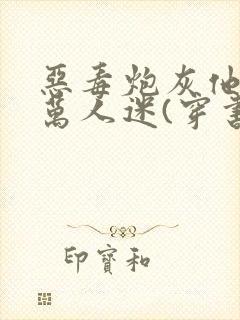 惡毒炮灰他
萬人迷(穿書
印寶和